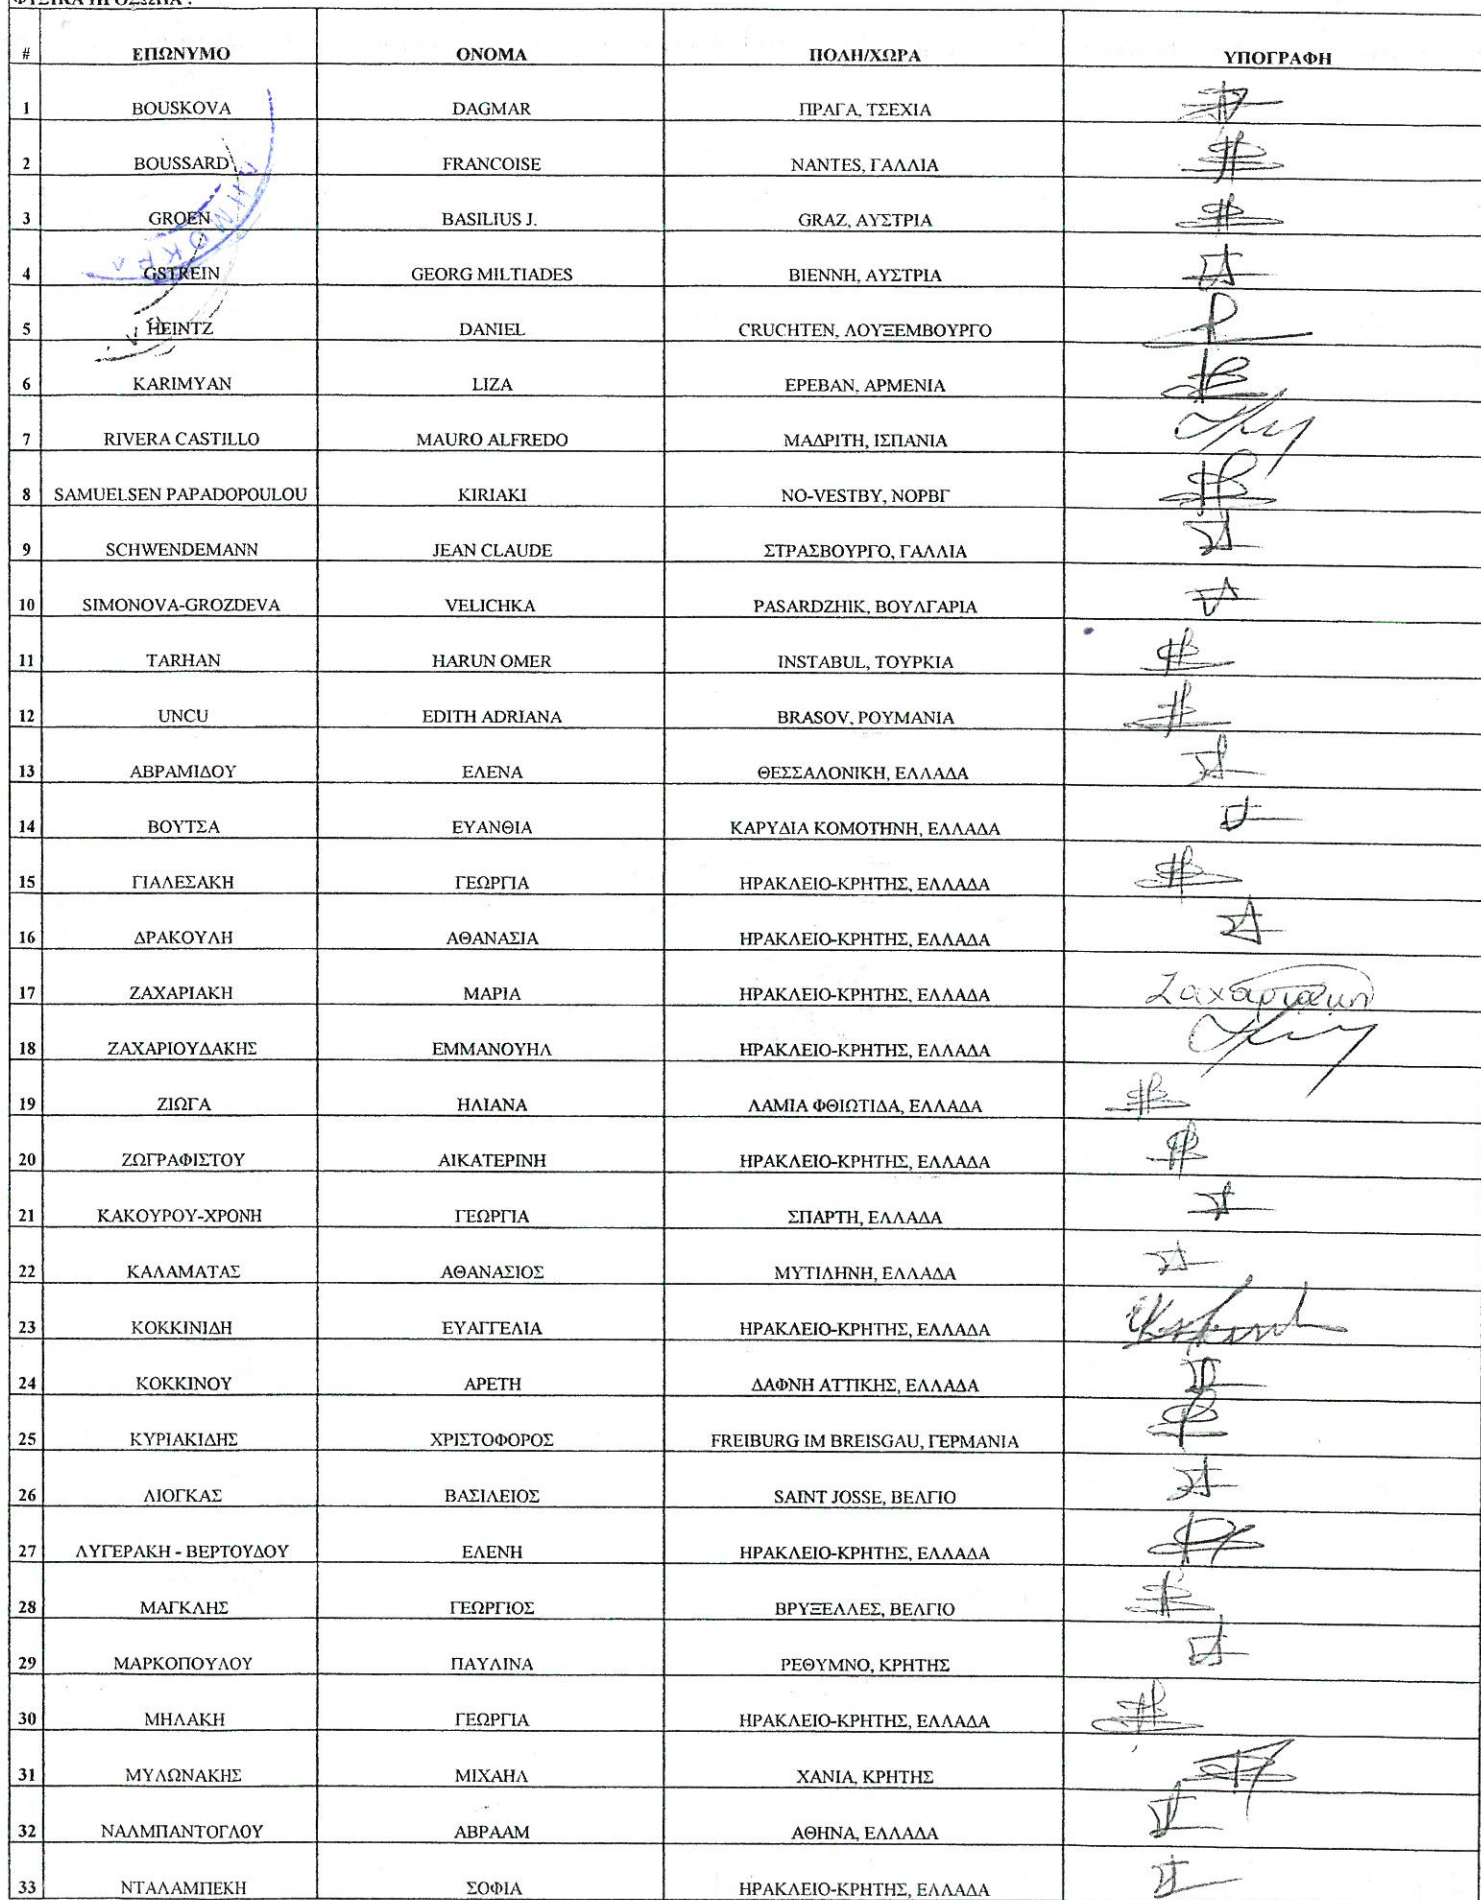 ΦΥΣΙΚΑ ΠΡΟΣΩΠΑ :
# ΕΠΩΝΥΜΟ ΟΝΟΜΑ ΠΟΛΗ/ΧΩΡΑ ΥΠΟΓΡΑΦΗ
1 BOUSKOVA DAGMAR ΠΡΑΓΑ, ΤΣΕΧΙΑ
2 BOUSSARD FRANCOISE NANTES, ΓΑΛΛΙΑ
3 GROEN BASILIUS J. GRAZ, ΑΥΣΤΡΙΑ
4 GSTREIN GEORG MILTIADES ΒΙΕΝΝΗ, ΑΥΣΤΡΙΑ
5 HEINTZ DANIEL CRUCHTEN, ΛΟΥΞΕΜΒΟΥΡΓΟ
6 KARIMYAN LIZA ΕΡΕΒΑΝ, ΑΡΜΕΝΙΑ
7 RIVERA CASTILLO MAURO ALFREDO ΜΑΔΡΙΤΗ, ΙΣΠΑΝΙΑ
8 SAMUELSEN PAPADOPOULOU KIRIAKI NO-VESTBY, ΝΟΡΒΓ
9 SCHWENDEMANN JEAN CLAUDE ΣΤΡΑΣΒΟΥΡΓΟ, ΓΑΛΛΙΑ
10 SIMONOVA-GROZDEVA VELICHKA PASARDZHIK, ΒΟΥΛΓΑΡΙΑ
11 TARHAN HARUN OMER INSTABUL, ΤΟΥΡΚΙΑ
12 UNCU EDITH ADRIANA BRASOV, ΡΟΥΜΑΝΙΑ
13 ΑΒΡΑΜΙΔΟΥ ΕΛΕΝΑ ΘΕΣΣΑΛΟΝΙΚΗ, ΕΛΛΑΔΑ
14 ΒΟΥΤΣΑ ΕΥΑΝΘΙΑ ΚΑΡΥΔΙΑ ΚΟΜΟΤΗΝΗ, ΕΛΛΑΔΑ
15 ΓΙΑΛΕΣΑΚΗ ΓΕΩΡΓΙΑ ΗΡΑΚΛΕΙΟ-ΚΡΗΤΗΣ, ΕΛΛΑΔΑ
16 ΔΡΑΚΟΥΛΗ ΑΘΑΝΑΣΙΑ ΗΡΑΚΛΕΙΟ-ΚΡΗΤΗΣ, ΕΛΛΑΔΑ
17 ΖΑΧΑΡΙΑΚΗ ΜΑΡΙΑ ΗΡΑΚΛΕΙΟ-ΚΡΗΤΗΣ, ΕΛΛΑΔΑ Ζαχαριακη
18 ΖΑΧΑΡΙΟΥΔΑΚΗΣ ΕΜΜΑΝΟΥΗΛ ΗΡΑΚΛΕΙΟ-ΚΡΗΤΗΣ, ΕΛΛΑΔΑ
19 ΖΙΩΓΑ ΗΛΙΑΝΑ ΛΑΜΙΑ ΦΘΙΩΤΙΔΑ, ΕΛΛΑΔΑ
20 ΖΩΓΡΑΦΙΣΤΟΥ ΑΙΚΑΤΕΡΙΝΗ ΗΡΑΚΛΕΙΟ-ΚΡΗΤΗΣ, ΕΛΛΑΔΑ
21 ΚΑΚΟΥΡΟΥ-ΧΡΟΝΗ ΓΕΩΡΓΙΑ ΣΠΑΡΤΗ, ΕΛΛΑΔΑ
22 ΚΑΛΑΜΑΤΑΣ ΑΘΑΝΑΣΙΟΣ ΜΥΤΙΛΗΝΗ, ΕΛΛΑΔΑ
23 ΚΟΚΚΙΝΙΔΗ ΕΥΑΓΓΕΛΙΑ ΗΡΑΚΛΕΙΟ-ΚΡΗΤΗΣ, ΕΛΛΑΔΑ
24 ΚΟΚΚΙΝΟΥ ΑΡΕΤΗ ΔΑΦΝΗ ΑΤΤΙΚΗΣ, ΕΛΛΑΔΑ
25 ΚΥΡΙΑΚΙΔΗΣ ΧΡΙΣΤΟΦΟΡΟΣ FREIBURG IM BREISGAU, ΓΕΡΜΑΝΙΑ
26 ΛΙΟΓΚΑΣ ΒΑΣΙΛΕΙΟΣ SAINT JOSSE, ΒΕΛΓΙΟ
27 ΛΥΓΕΡΑΚΗ - ΒΕΡΤΟΥΔΟΥ ΕΛΕΝΗ ΗΡΑΚΛΕΙΟ-ΚΡΗΤΗΣ, ΕΛΛΑΔΑ
28 ΜΑΓΚΛΗΣ ΓΕΩΡΓΙΟΣ ΒΡΥΞΕΛΛΕΣ, ΒΕΛΓΙΟ
29 ΜΑΡΚΟΠΟΥΛΟΥ ΠΑΥΛΙΝΑ ΡΕΘΥΜΝΟ, ΚΡΗΤΗΣ
30 ΜΗΛΑΚΗ ΓΕΩΡΓΙΑ ΗΡΑΚΛΕΙΟ-ΚΡΗΤΗΣ, ΕΛΛΑΔΑ
31 ΜΥΛΩΝΑΚΗΣ ΜΙΧΑΗΛ ΧΑΝΙΑ, ΚΡΗΤΗΣ
32 ΝΑΛΜΠΑΝΤΟΓΛΟΥ ΑΒΡΑΑΜ ΑΘΗΝΑ, ΕΛΛΑΔΑ
33 ΝΤΑΛΑΜΠΕΚΗ ΣΟΦΙΑ ΗΡΑΚΛΕΙΟ-ΚΡΗΤΗΣ, ΕΛΛΑΔΑ